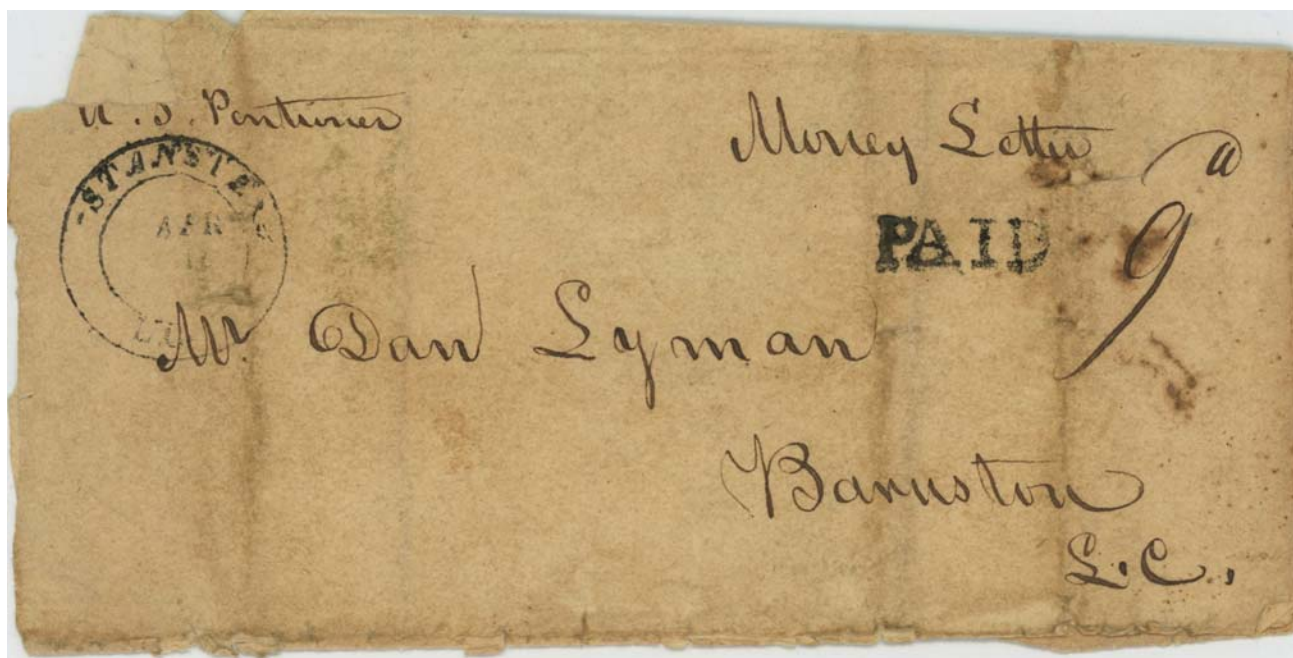 U. S. Pentioner
Money Letter
STANSTEAD
APR
PAID 9d
Mr. Dan Lyman
Barnston
L.C.